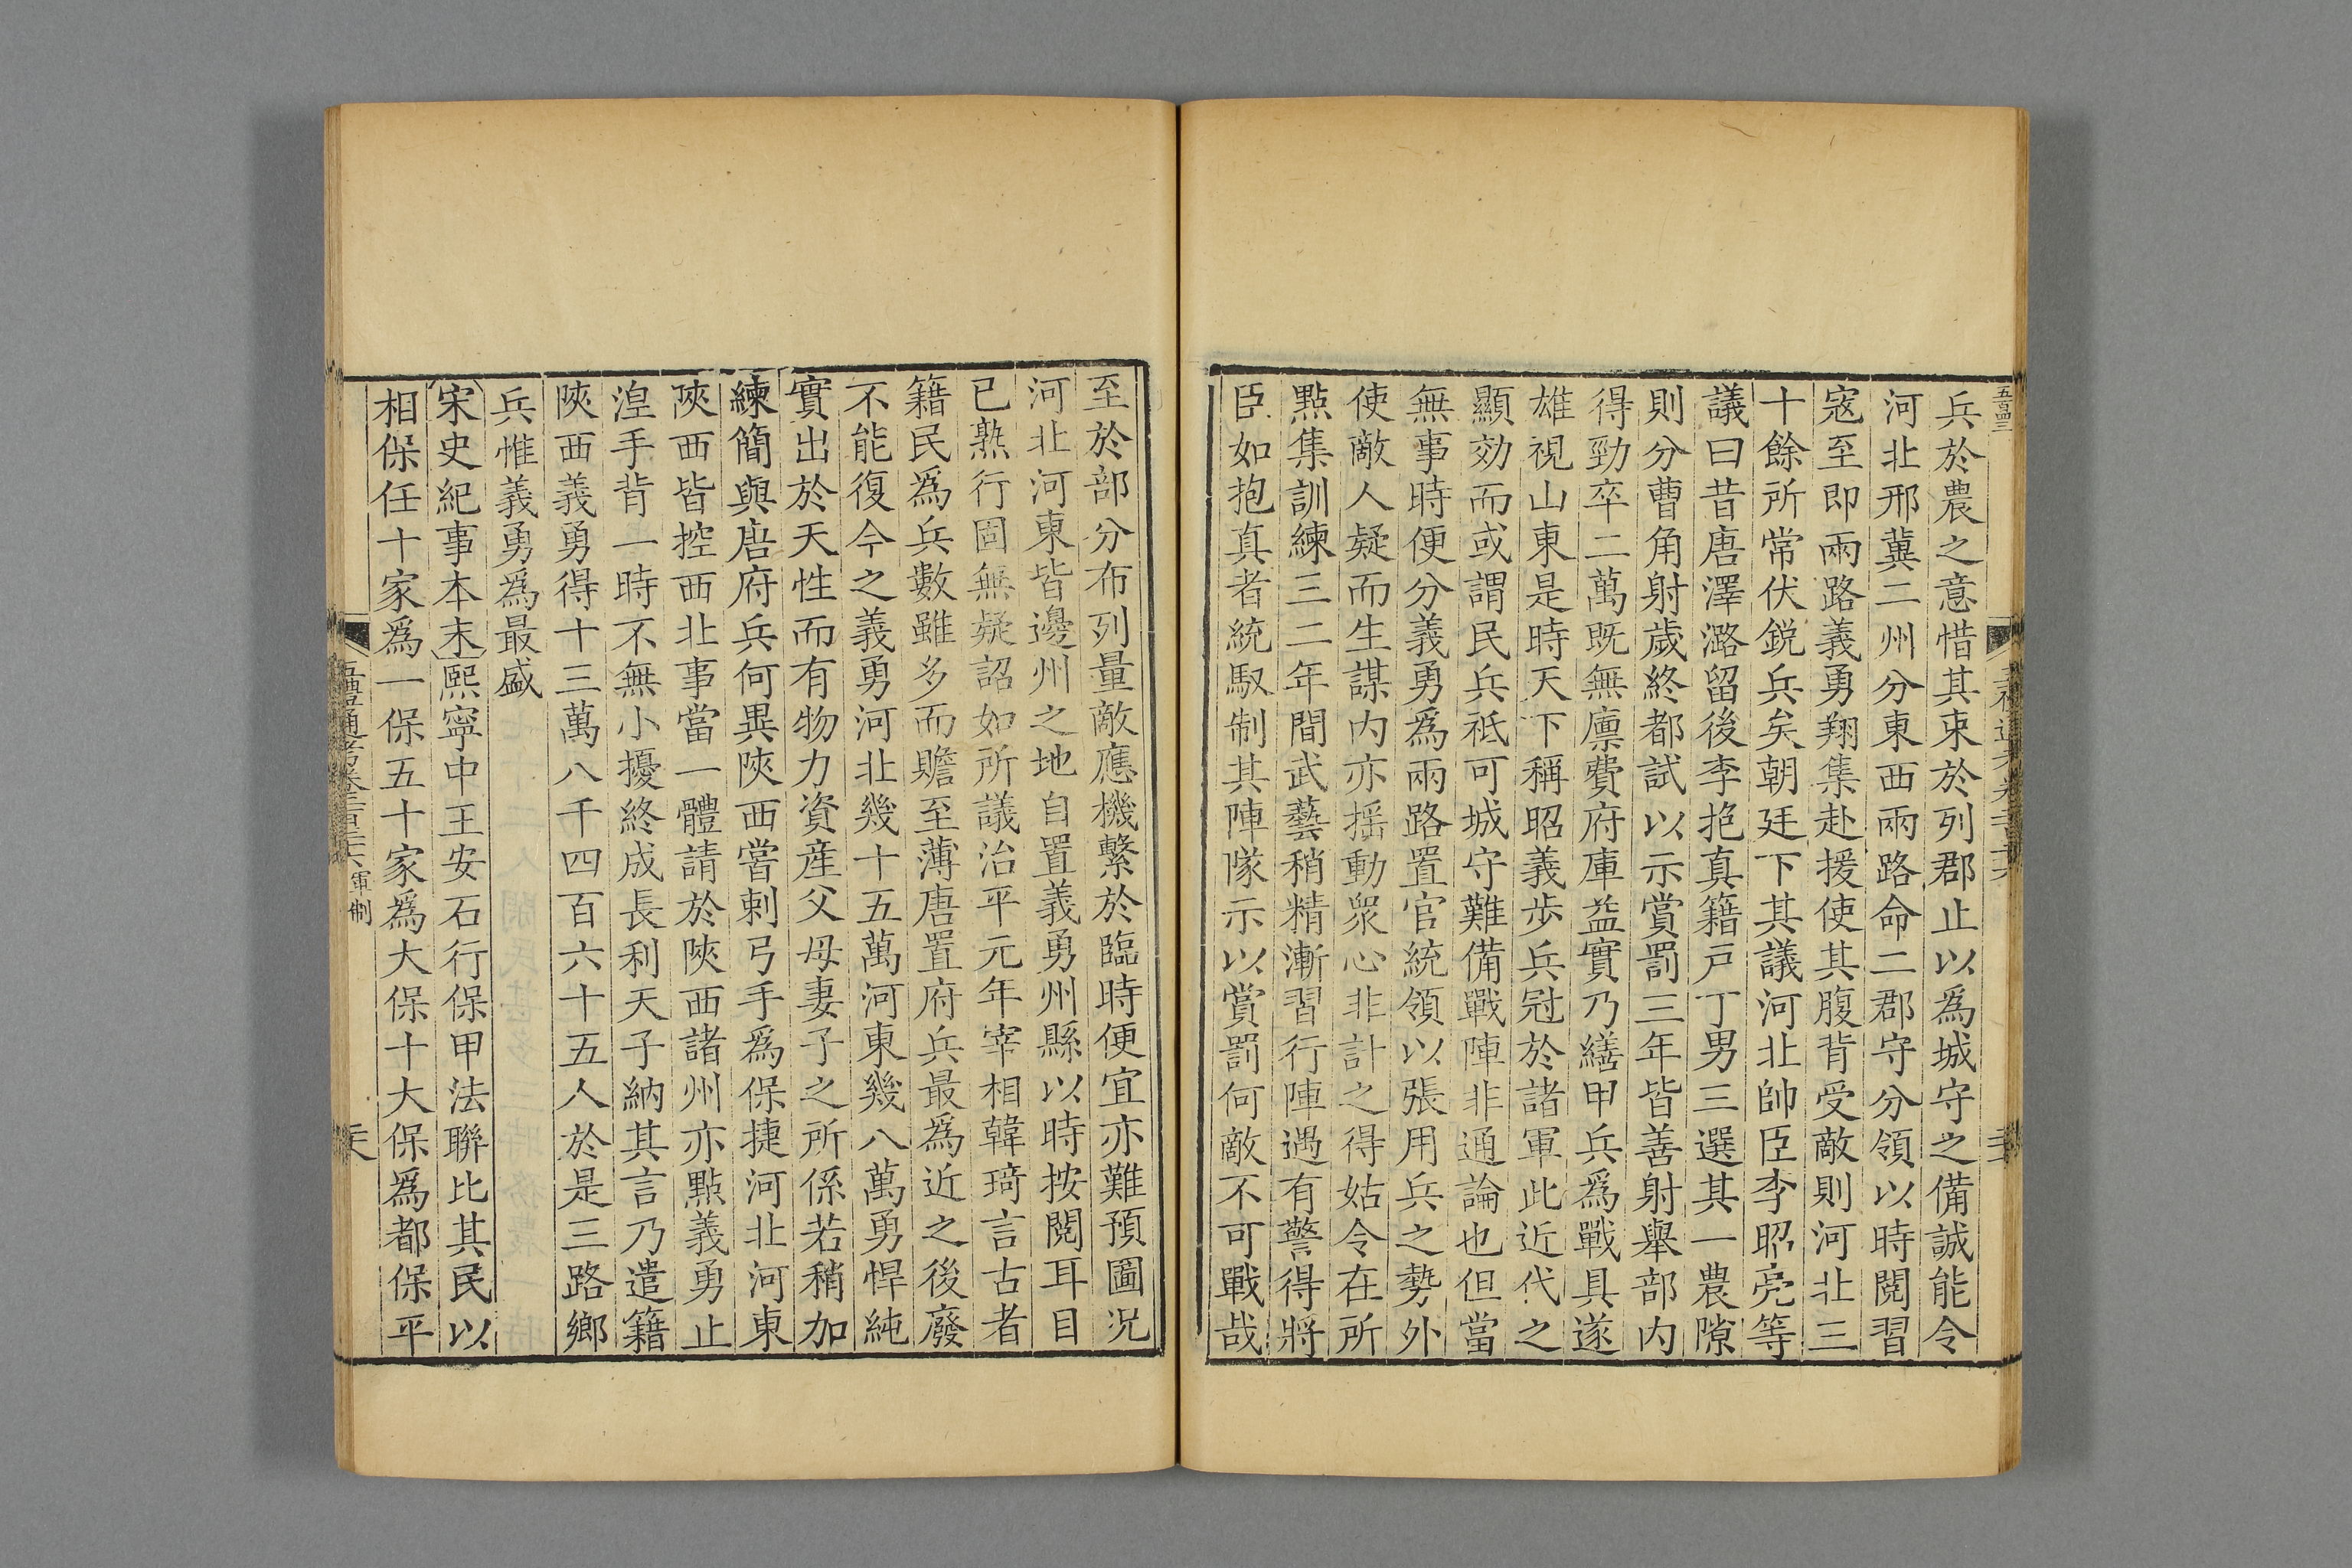 兵於農之意惜其束於列郡止以爲城守之備誠能令
河北邢冀二州分東西兩路命二郡守分領以時閱習
寇至即兩路義勇翔集赴援使其腹背受敵則河北三
十餘所常伏銳兵矣朝廷下其議河北帥臣李昭亮等
議曰昔唐澤潞留後李抱真籍戸丁男三選其一農隙
則分曹角射歲終都試以示賞罰三年皆善射舉部内
得勁卒二萬既無廪費府庫益實乃繕甲兵爲戰具遂
雄視山東是時天下稱昭義步兵冠於諸軍此近代之
顯効而或謂民兵祇可城守難備戰陣非通論也但當
無事時便分義勇爲兩路置官統領以張用兵之勢外
使敵人疑而生謀内亦揺動衆心非計之得姑令在所
點集訓練三二年間武藝稍精漸習行陣遇有警得將
臣如抱真者統馭制其陣隊示以賞罰何敵不可戰哉
至於部分布列量敵應機繫於臨時便宜亦難預圖況
河北河東皆邊州之地自置義勇州縣以時按閱耳目
已熟行固無疑詔如所議治平元年宰相韓琦言古者
籍民爲兵數雖多而贍至薄唐置府兵最爲近之後廢
不能復今之義勇河北幾十五萬河東幾八萬勇悍純
實出於天性而有物力資産父母妻子之所係若稍加
練簡與唐府兵何異陝西嘗刺弓手爲保捷河北河東
陝西皆控西北事當一體請於陝西諸州亦點義勇止
湼手背一時不無小擾終成長利天子納其言乃遣籍
陝西義勇得十三萬八千四百六十五人於是三路鄉
兵惟義勇爲最盛
宋史紀事本末熙寧中王安石行保甲法聯比其民以
相保任十家爲一保五十家爲大保十大保爲都保平
五禮通考卷二百三十六 軍制